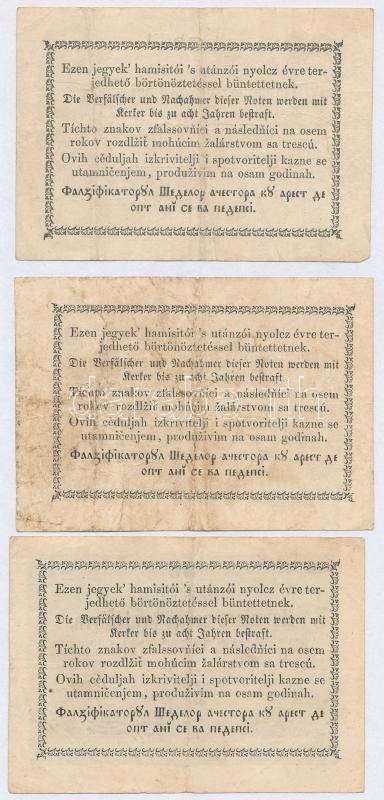 Ezen jegyek' hamisitói 's utánzói nyolcz évre ter-
jedhető börtönöztetéssel büntettetnek.
Die Verfälscher und Nachahmer dieser Noten werden mit
Kerker bis zu acht Jahren bestraft.
Tíchto znakov zfálssovňíci a následňíci na osem
rokov rozdlžiť mohúcim žalárstvom sa trescú.
Ovih cěduljah izkrivitelji i spotvoritelji kazne se
utamničenjem, produživim na osam godinah.
Фалзіфікаторȣл Шеделор ачестора кȣ арест де
опт анї се ва педепсі.
Ezen jegyek' hamisitói 's utánzói nyolcz évre ter-
jedhető börtönöztetéssel büntettetnek.
Die Verfälscher und Nachahmer dieser Noten werden mit
Kerker bis zu acht Jahren bestraft.
Tíchto znakov zfálssovňíci a následňíci na osem
rokov rozdlžiť mohúcim žalárstvom sa trescú.
Ovih cěduljah izkrivitelji i spotvoritelji kazne se
utamničenjem, produživim na osam godinah.
Фалзіфікаторȣл Шеделор ачестора кȣ арест де
опт анї се ва педепсі.
Ezen jegyek' hamisitói 's utánzói nyolcz évre ter-
jedhető börtönöztetéssel büntettetnek.
Die Verfälscher und Nachahmer dieser Noten werden mit
Kerker bis zu acht Jahren bestraft.
Tíchto znakov zfálssovňíci a následňíci na osem
rokov rozdlžiť mohúcim žalárstvom sa trescú.
Ovih cěduljah izkrivitelji i spotvoritelji kazne se
utamničenjem, produživim na osam godinah.
Фалзіфікаторȣл Шеделор ачестора кȣ арест де
опт анї се ва педепсі.